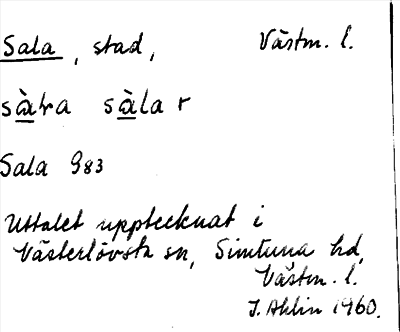 Sala, stad, Västm. l.
sàla sàlar
Sala 983
Uttalet upptecknat i
Västerlövsta sn, Simtuna hd,
Västm. l.
J. Ahlin 1960.